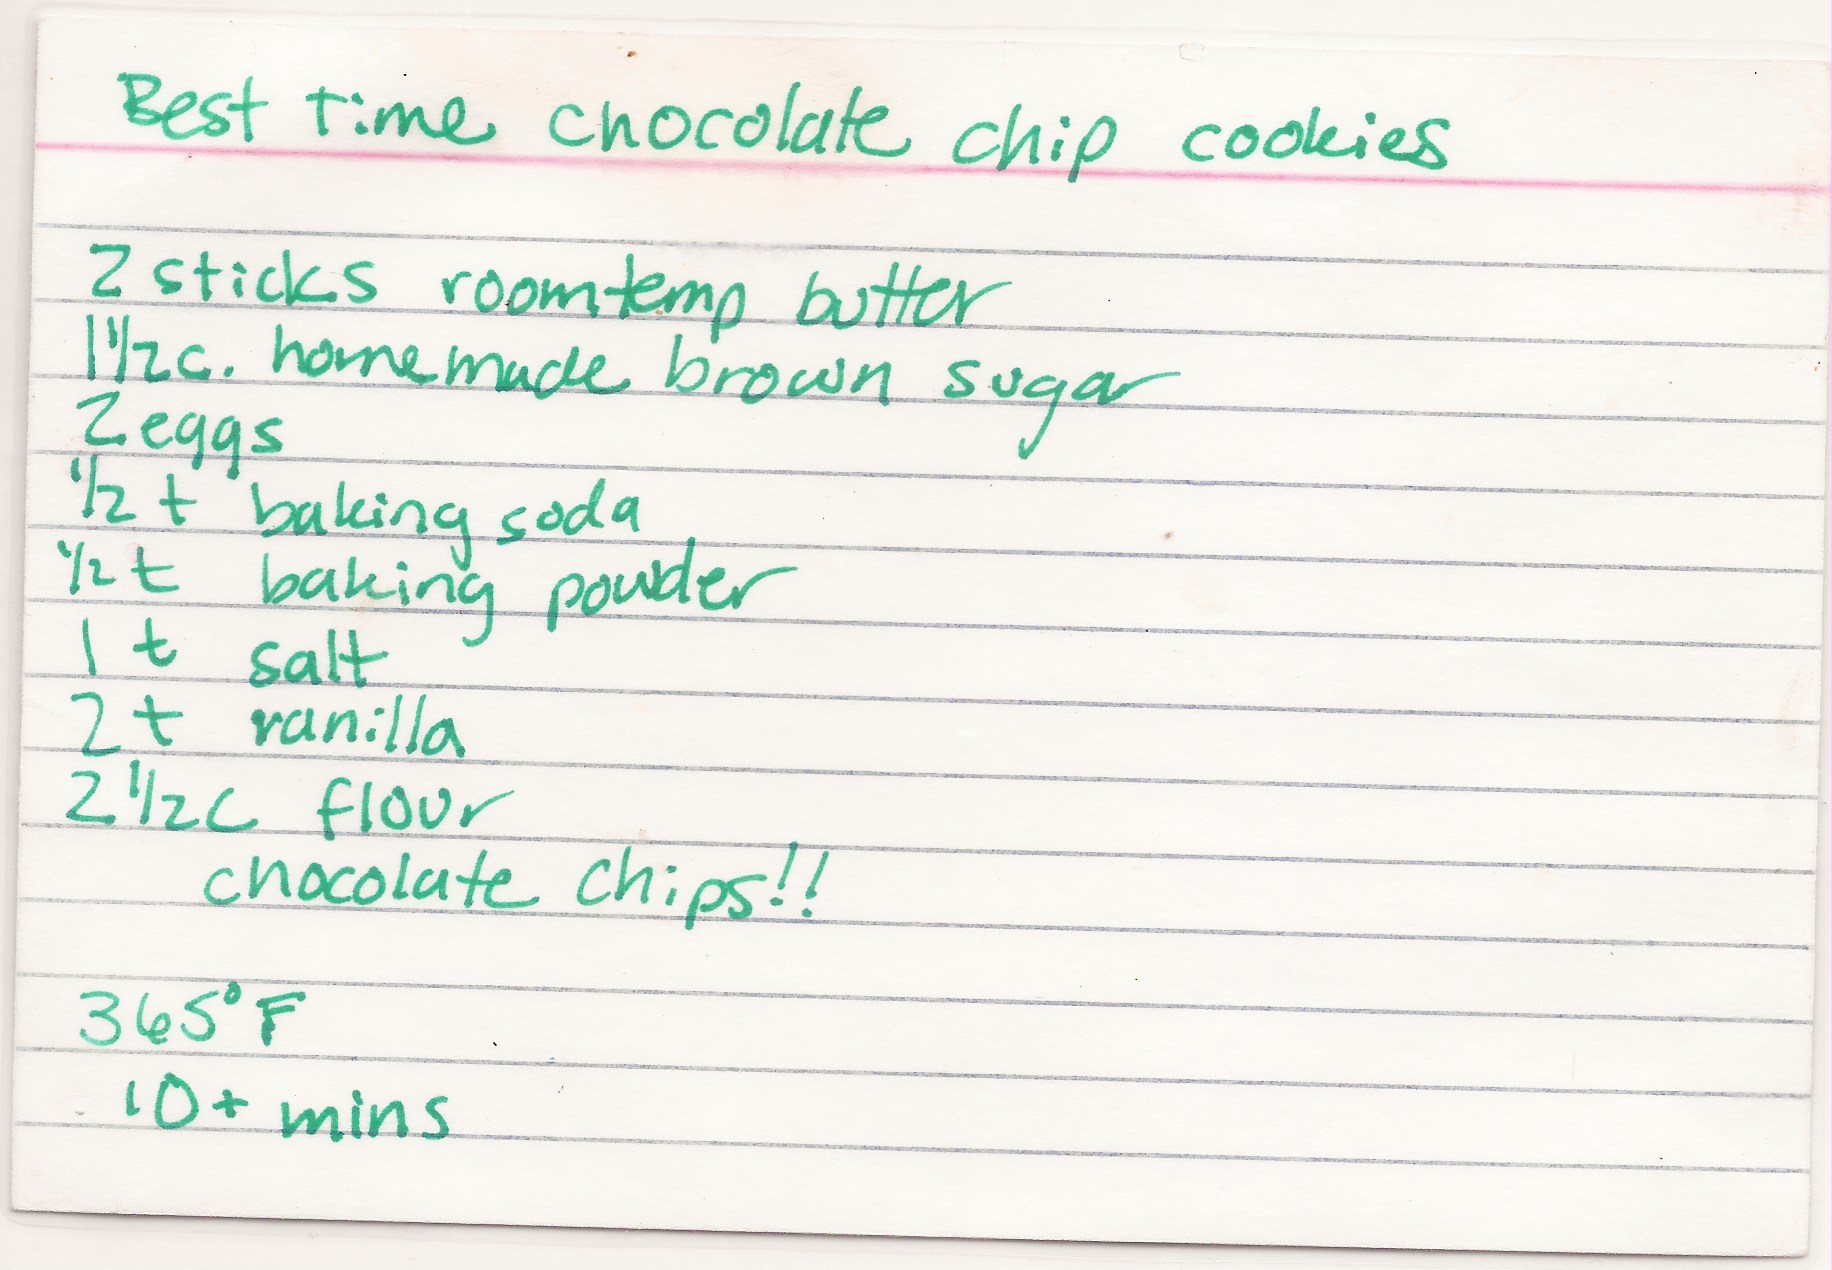 Best Time chocolate chip cookies
2 sticks room temp butter
1 1/2 c. homemade brown sugar
2 eggs
1/2 t baking soda
1/2 t baking powder
1 t salt
2 t vanilla
2 1/2 c flour
chocolate chips!!
365° F
10+ mins